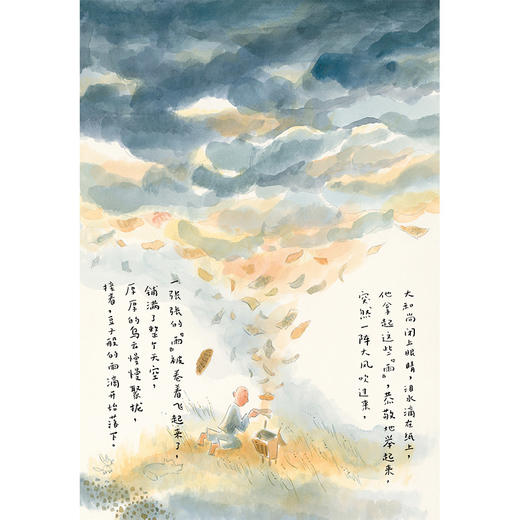 大和尚闭上眼睛，泪水滴在纸上，
他拿起这些“雨”，恭敬地举起来，
突然一阵大风吹过来，
一张张的“雨”被卷着飞起来了，
铺满了整个天空，
厚厚的乌云慢慢聚拢，
接着，豆子般的雨滴开始落下。